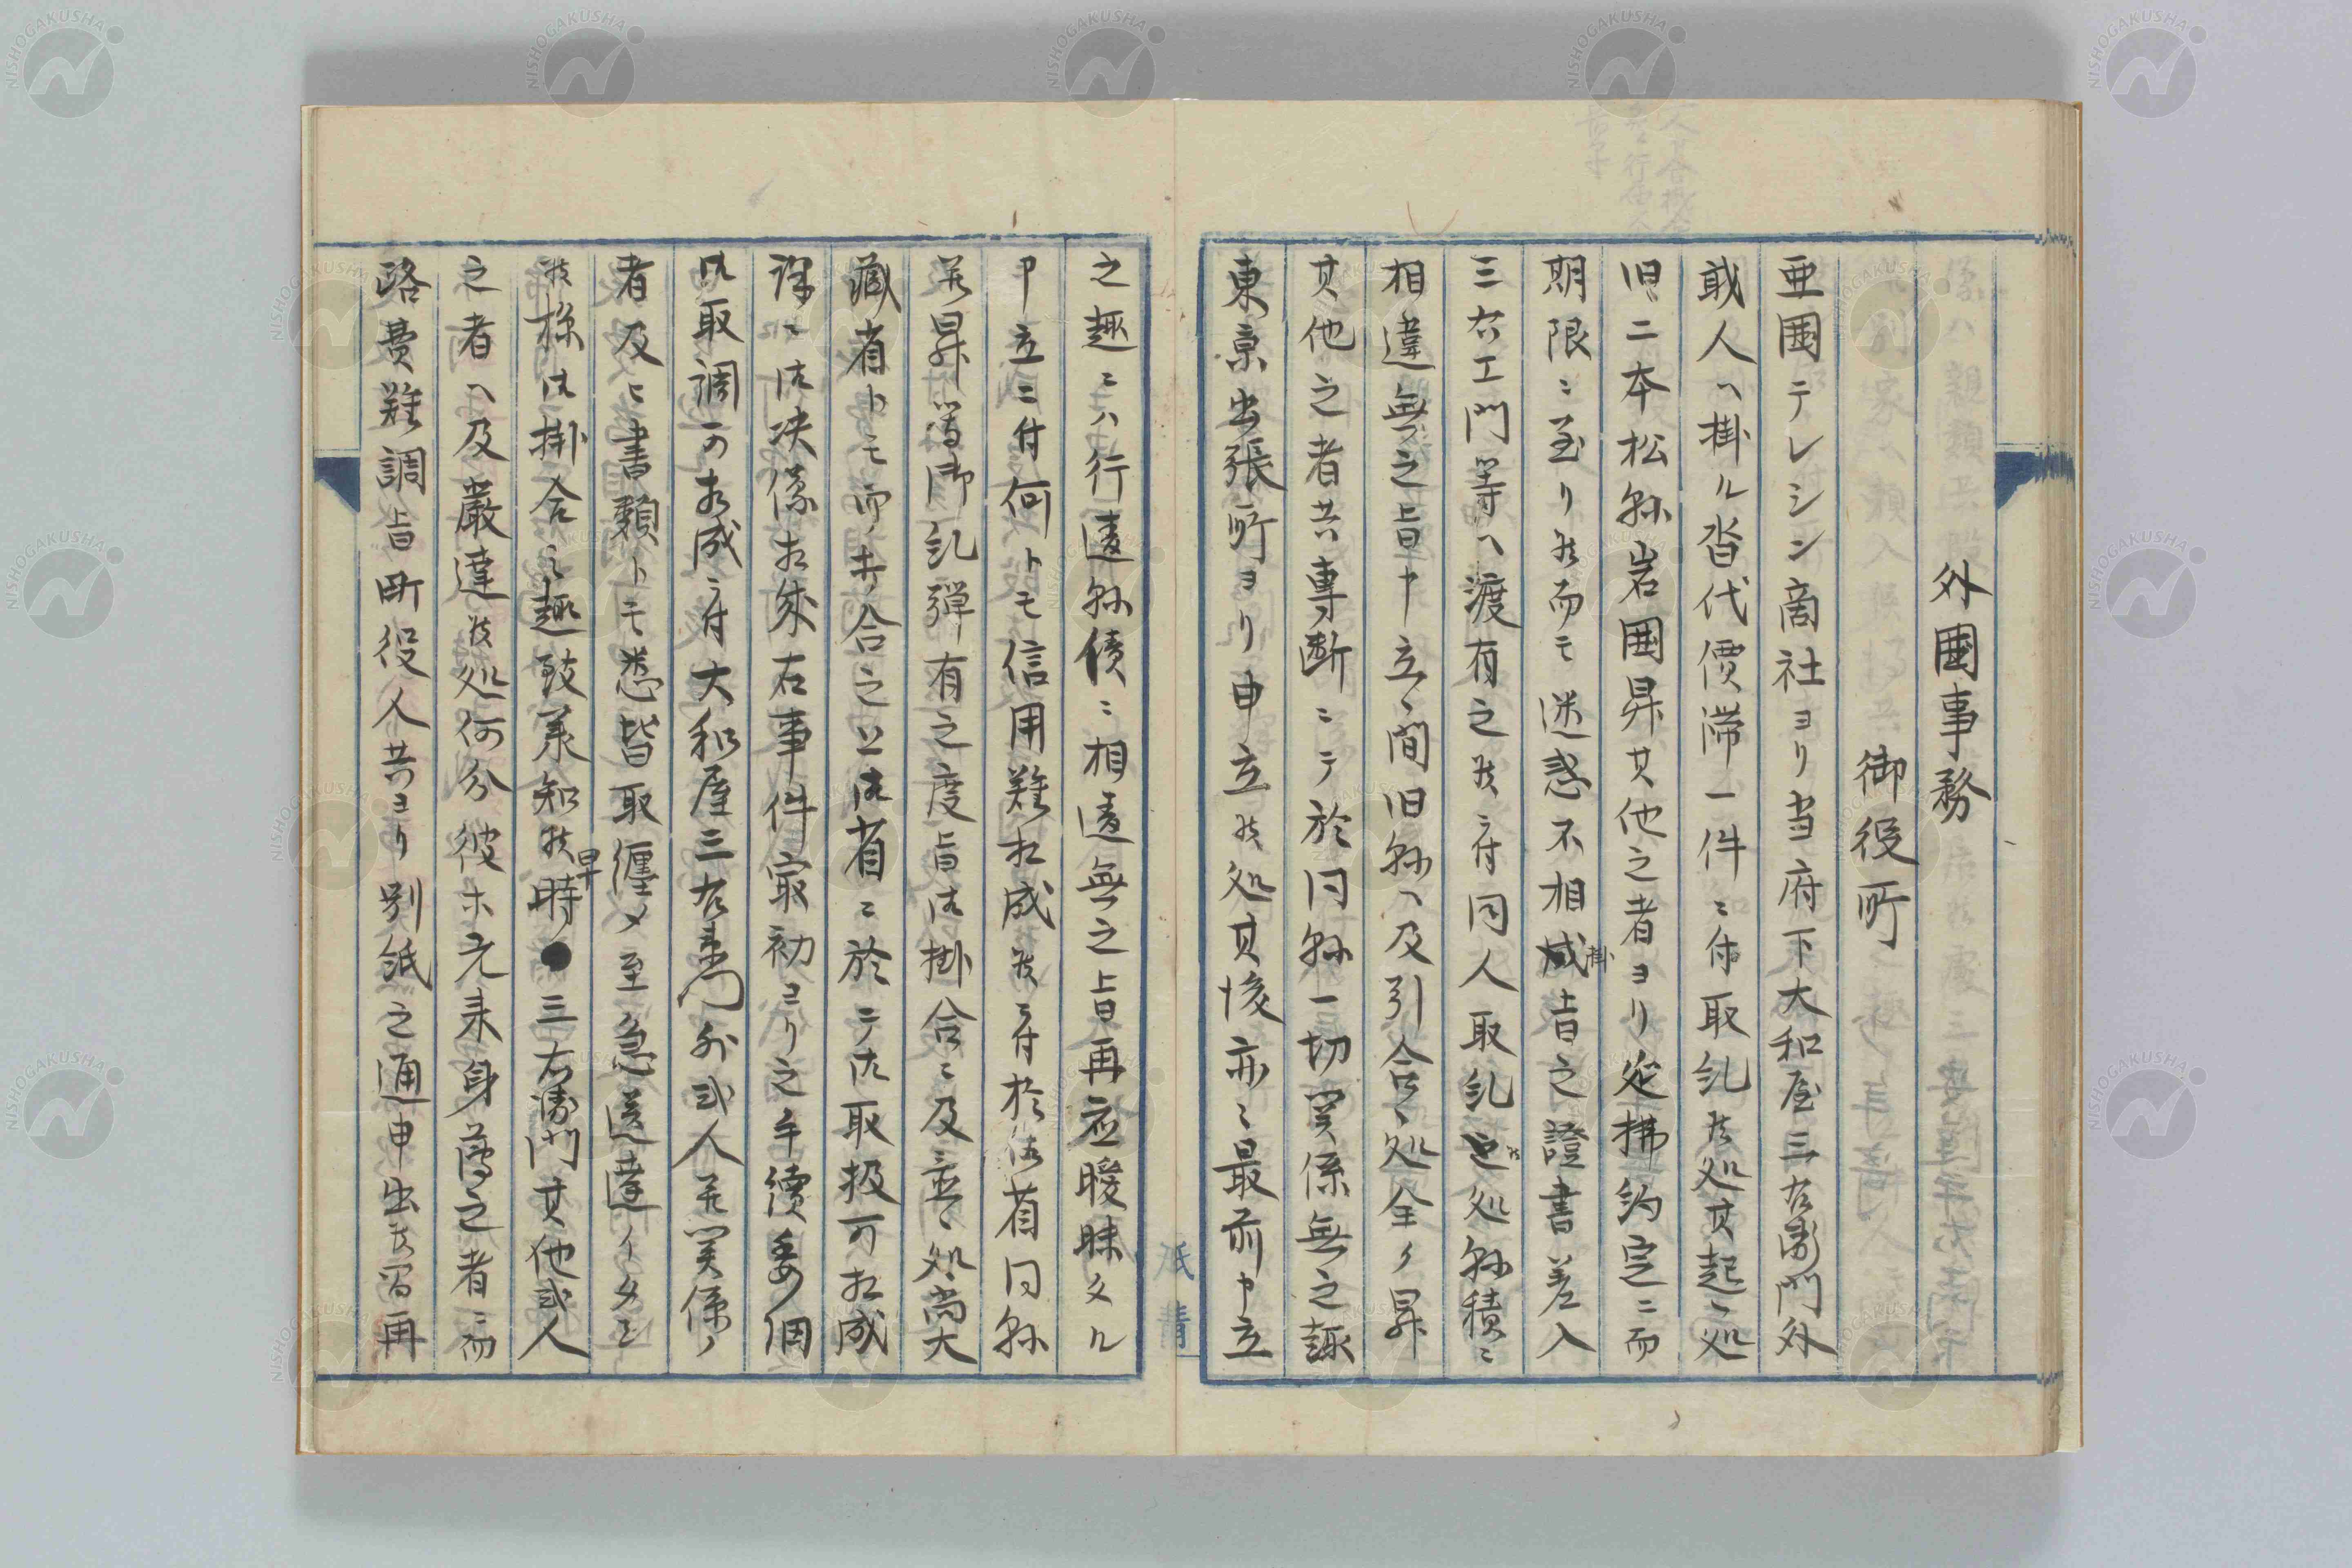 外國事務
御役所
亜國テレシン商社ヨリ当府下大和屋三右衛門外
弐人ヘ掛ル沓代價滞一件ニ付取糺候処其起ハ処
旧二本松縣岩囲昇其他之者ヨリ延拂約定ニ而
期限ニ至リ候而モ迷惑不相掛旨之證書差入
三右エ門等ヘ渡有之候ニ付同人取糺候処縣積ニ
相違無之旨申立候間旧縣ヘ及引合候処全ク昇
其他之者共専断ニテ於同縣一切関係無之趣
東京出張所ヨリ申立候処其後亦ニ最前申立
之趣ニハ行違縣債ニ相違無之旨再應曖昧タル
申立ニ付何トモ信用難相成候ニ付於御省同縣
并昇等御糺弾有之度旨御掛合ニ及置候処尚大
藏省トモ御打合之上御省ニ於テ御取扱可相成
譯ニ御决係相成右事件最初ヨリ之手續委細
御取調可相成ニ付大和屋三右衛門外弐人并関係ノ
者及ヒ書類トモ悉皆取纏メ至急送達イタシ
候様御掛合之趣致承知候昇時三右衛門其他弐人
之者ヘ及嚴達候処何分彼ホ元来身薄之者ニ而
路費難調旨町役人共ヨリ別紙之通申出候間再
NISHOGAKUSHA